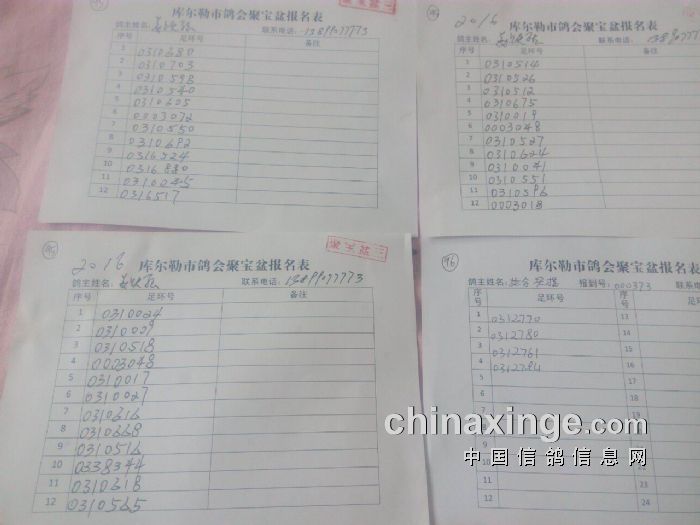 库尔勒市鸽会聚宝盆报名表
鸽主姓名: 联系电话:
序号 足环号 备注
1 0310680
2 0310703
3 0310598
4 0310540
5 0310605
6 0003072
7 0310550
8 0310692
9 0316524
10 0316880
11 0310045
12 0316517
2016 库尔勒市鸽会聚宝盆报名表
鸽主姓名: 联系电话:
序号 足环号 备注
1 0310514
2 0310526
3 0310512
4 0310675
5 0310019
6 0003048
7 0310527
8 0310624
9 0310041
10 0310551
11 0310596
12 0003018
2016 库尔勒市鸽会聚宝盆报名表
鸽主姓名: 联系电话:
序号 足环号 备注
1 0310024
2 0310009
3 0310518
4 0003048
5 0310017
6 0310027
7 0310616
8 0310668
9 0310516
10 0338344
11 0310618
12 0310565
96 库尔勒市鸽会聚宝盆报名表
鸽主姓名: 报到号: 000373
序号 足环号 序号 足环号
1 0312770 13
2 0312780 14
3 0312761 15
4 0312784 16
5
6
7
8
9
10
11 23
12 24
chinaxinge.com
中国信鸽信息网